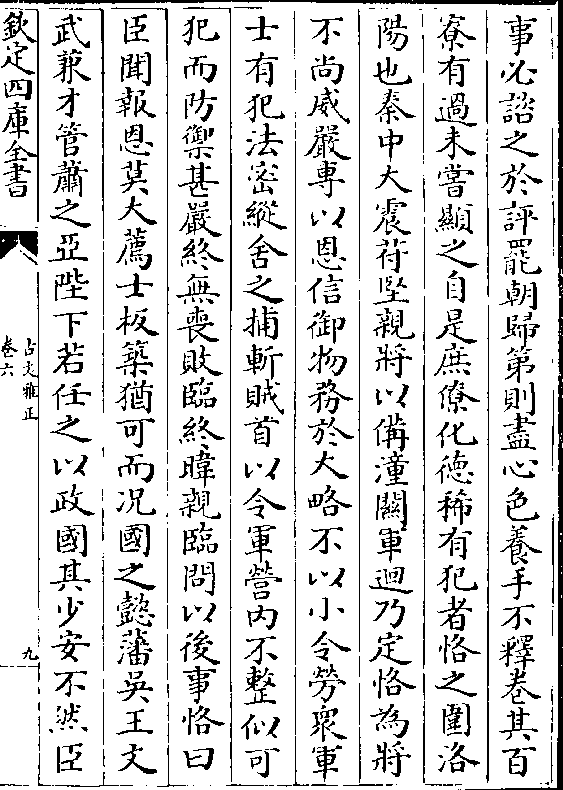 事必諮之於評罷朝歸第則盡心色養手不釋卷其百
寮有過未嘗顯之自是庶僚化德稀有犯者恪之圍洛
陽也秦中大震苻堅親將以備潼關軍迴乃定恪為將
不尚威嚴専以恩信御物務於大略不以小令勞衆軍
士有犯法密縱舍之捕斬賊首以令軍營内不整似可
犯而防禦甚嚴終無喪敗臨終暐親臨問以後事恪曰
臣聞報恩莫大薦士板築猶可而况國之懿藩吳王文
武兼才管蕭之亞陛下若任之以政國其少安不然臣
欽定四庫全書
古文雅正
卷六
九